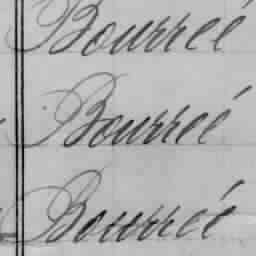 Bourreé
Bourreé
Bourreé